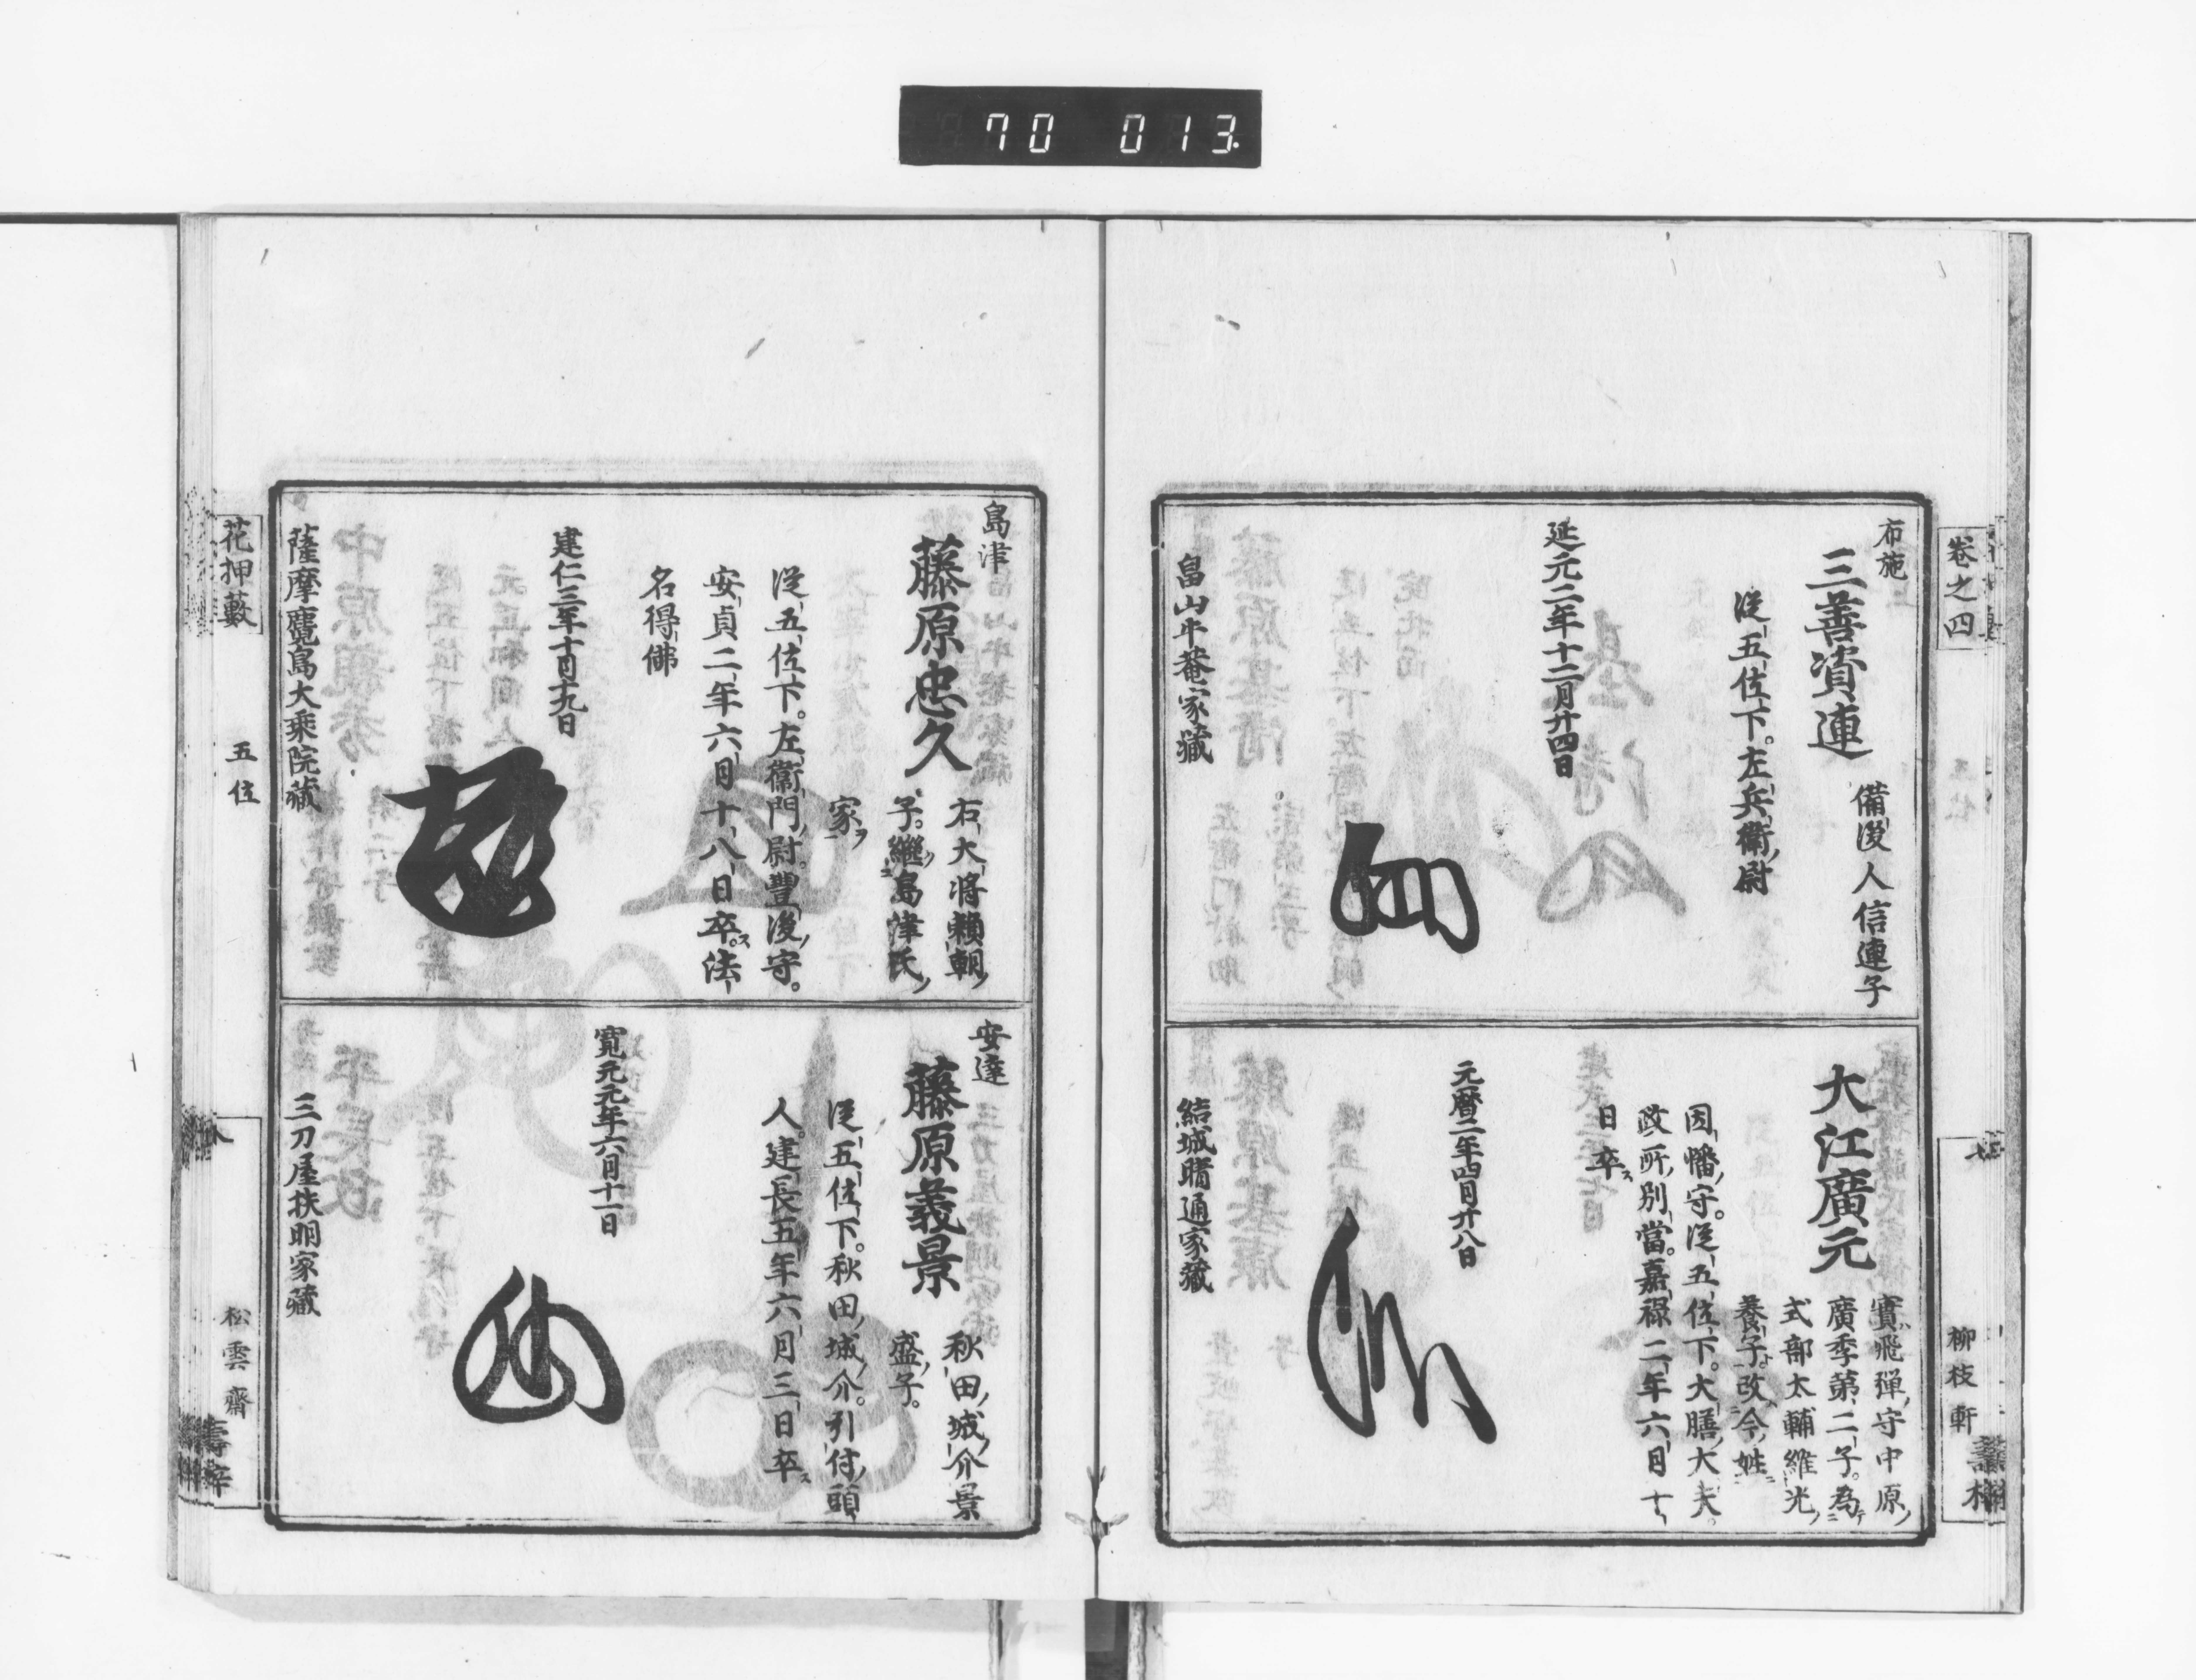 70 013.
卷之四
柳枝軒
布施
三善資連
備後人信連子
從五位下。左兵衛尉
延元二年十二月廿四日
畠山牛菴家藏
大江廣元
實飛彈守中原
廣季第二子。為
式部太輔維光
養子。改今姓
因幡守。從五位下。大膳大夫。
政所別當。嘉祿二年六月十
日卒
元曆二年四月廿八日
結城晴通家藏
島津
藤原忠久
右大將賴朝
子。繼島津氏
家
從五位下。左衞門尉。豐後守。
安貞二年六月十八日卒。法
名得佛
建仁三年十月十九日
薩摩麑島大乘院藏
安達
藤原義景
秋田城介景
盛子。
從五位下。秋田城介。引付頭
人。建長五年六月三日卒
寬元元年六月十一日
三刀屋扶明家藏
花押藪
五位
八
松雲齋